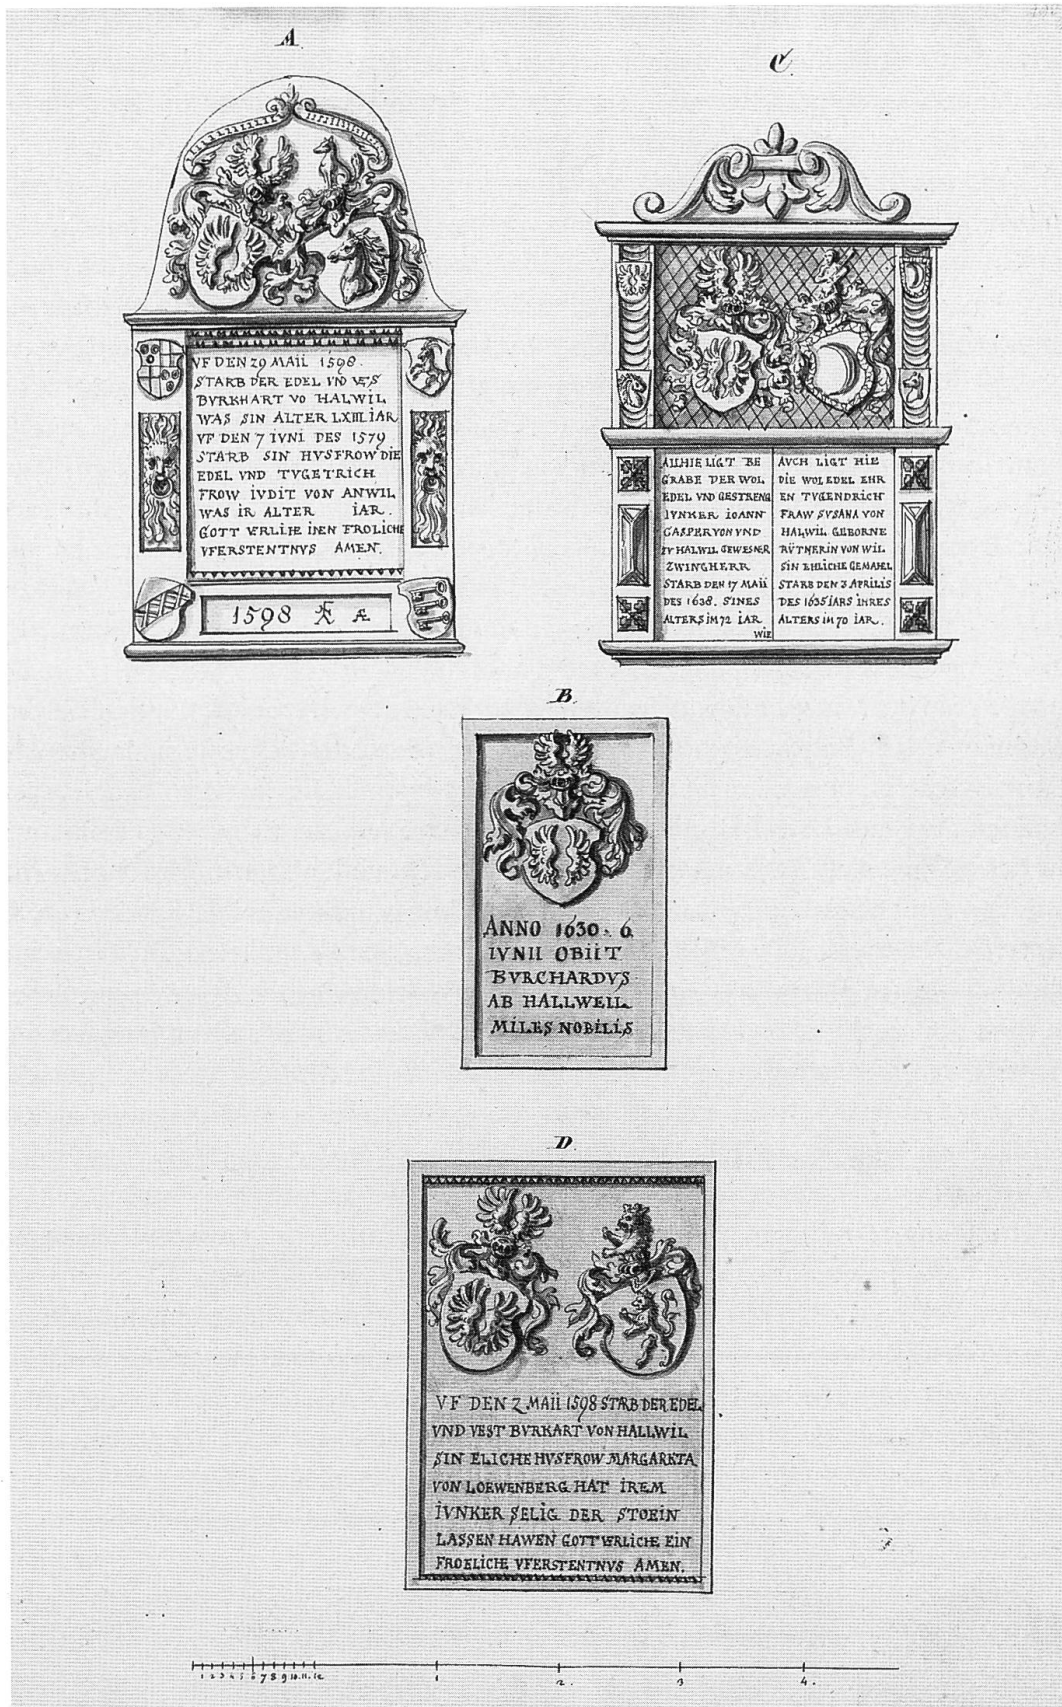 A.
C.
VF DEN 29 MAII 1598.
STARB DER EDEL VND VES
BVRKHART VO HALWIL
WAS SIN ALTER LXIII IAR
VF DEN 7 IVNI DES 1579
STARB SIN HVSFROW DIE
EDEL VND TVGETRICH
FROW IVDIT VON ANWIL
WAS IR ALTER IAR.
GOTT VERLIHE INEN FROLICHE
VFERSTENTNVS AMEN.
1598 Æ
ALLHIE LIGT BE
GRABE DER WOL
EDEL VND GESTRENG
IVNKER IOANN
CASPER VON VND
ZV HALWIL GEWESNER
ZWINGHERR
STARB DEN 17 MAII
DES 1638. SINES
ALTERS IM 72 IAR
WIE
AVCH LIGT HIE
DIE WOL EDEL EHR
EN TVGENDRICH
FRAW SVSANA VON
HALWIL GEBORNE
RŸTNERIN VON WIL
SIN EHLICHE GEMAHEL
STARB DEN 3 APRILIS
DES 1635 IARS IHRES
ALTERS IM 70 IAR.
B.
ANNO 1630. 6.
IVNII OBIIT
BVRCHARDVS
AB HALLWEIL
MILES NOBILIS
D.
VF DEN 2 MAII 1598 STARB DER EDEL
VND VEST BVRKART VON HALLWIL
SIN ELICHE HVSFROW MARGARETA
VON LOEWENBERG HAT IREM
IVNKER SELIG DER STOEIN
LASSEN HAWEN GOTT VERLICHE EIN
FROELICHE VFERSTENTNVS AMEN.
1 2 3 4 5 6 7 8 9 10 11 12 1 2. 3 4.